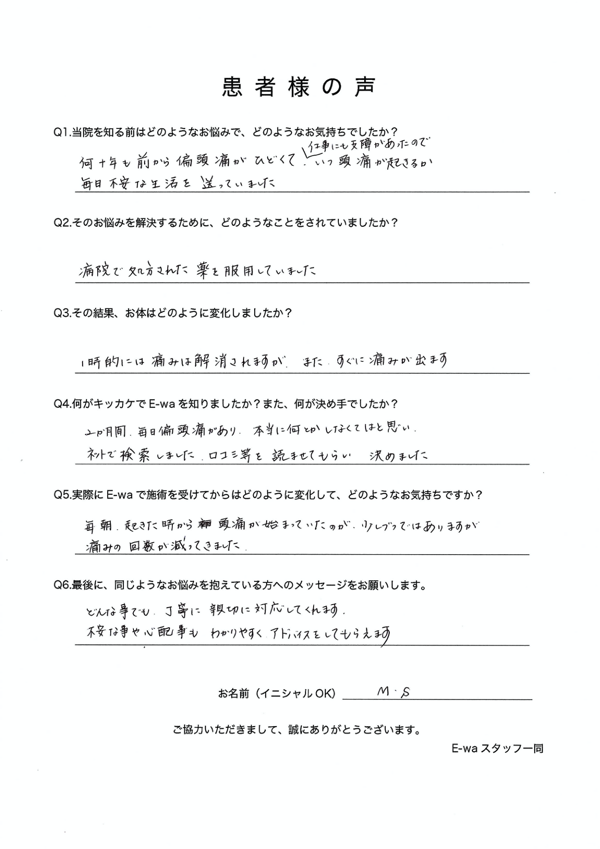 患者様の声
Q1.当院を知る前はどのようなお悩みで、どのようなお気持ちでしたか？
仕事にも支障があったので
何十年も前から偏頭痛がひどくて、いつ頭痛が起きるか
毎日不安な生活を送っていました
Q2.そのお悩みを解決するために、どのようなことをされていましたか？
病院で処方された薬を服用していました
Q3.その結果、お体はどのように変化しましたか？
1時的には痛みは解消されますが、また、すぐに痛みが出ます
Q4.何がキッカケでE-waを知りましたか？また、何が決め手でしたか？
2か月間、毎日偏頭痛があり、本当に何とかしなくてはと思い、
ネットで検索しました。口コミ等を読ませてもらい 決めました
Q5.実際にE-waで施術を受けてからはどのように変化して、どのようなお気持ちですか？
毎朝、起きた時から頭痛が始まっていたのが、少しづつではありますが
痛みの回数が減ってきました。
Q6.最後に、同じようなお悩みを抱えている方へのメッセージをお願いします。
どんな事でも、丁寧に親切に対応してくれます。
不安な事や心配事も わかりやすくアドバイスをしてもらえます
お名前（イニシャルOK） M・S
ご協力いただきまして、誠にありがとうございます。
E-waスタッフ一同